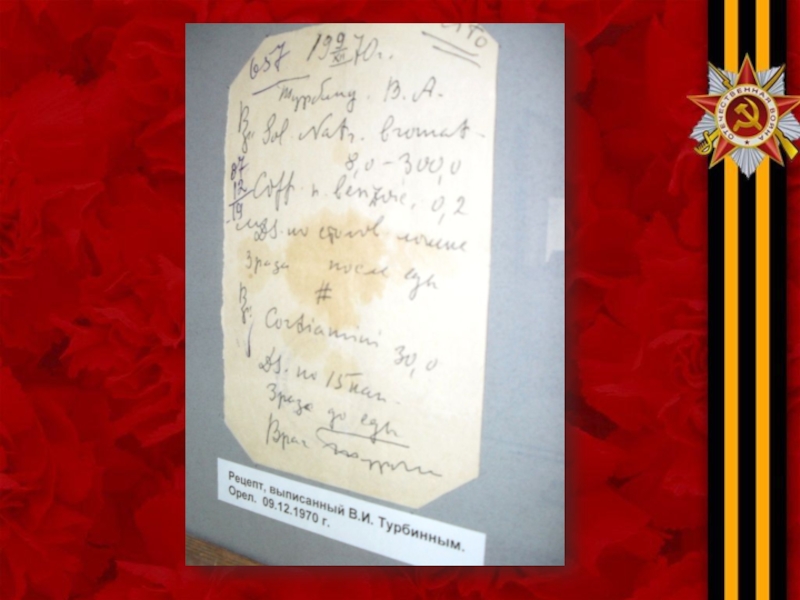 Cito
657 19 9/XII 70 г.
Турбину. В. А.
Rp: Sol. Natr. bromat.
8,0 – 300,0
87
12
19
Coff. n. benzoic. 0,2
DS. по столов. ложке
3 раза после еды
#
Rp: Cordiamini 30,0
DS. по 15 кап.
3 раза до еды
Врач
Рецепт, выписанный В.И. Турбинным.
Орел. 09.12.1970 г.
ОТЕЧЕСТВЕННАЯ ВОЙНА